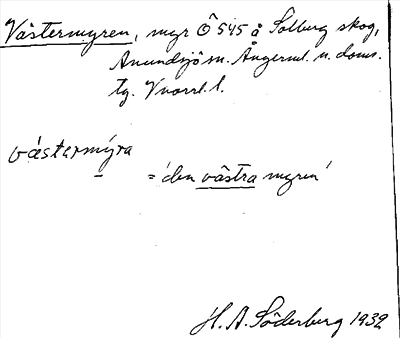 Västermyren, myr Ö 545 å Solberg skog,
Anundsjö sn. Ångerml. n. doms.
tg. Vnorrl. l.
västarmýra
= 'den västra myren'
H. A. Söderberg 1932